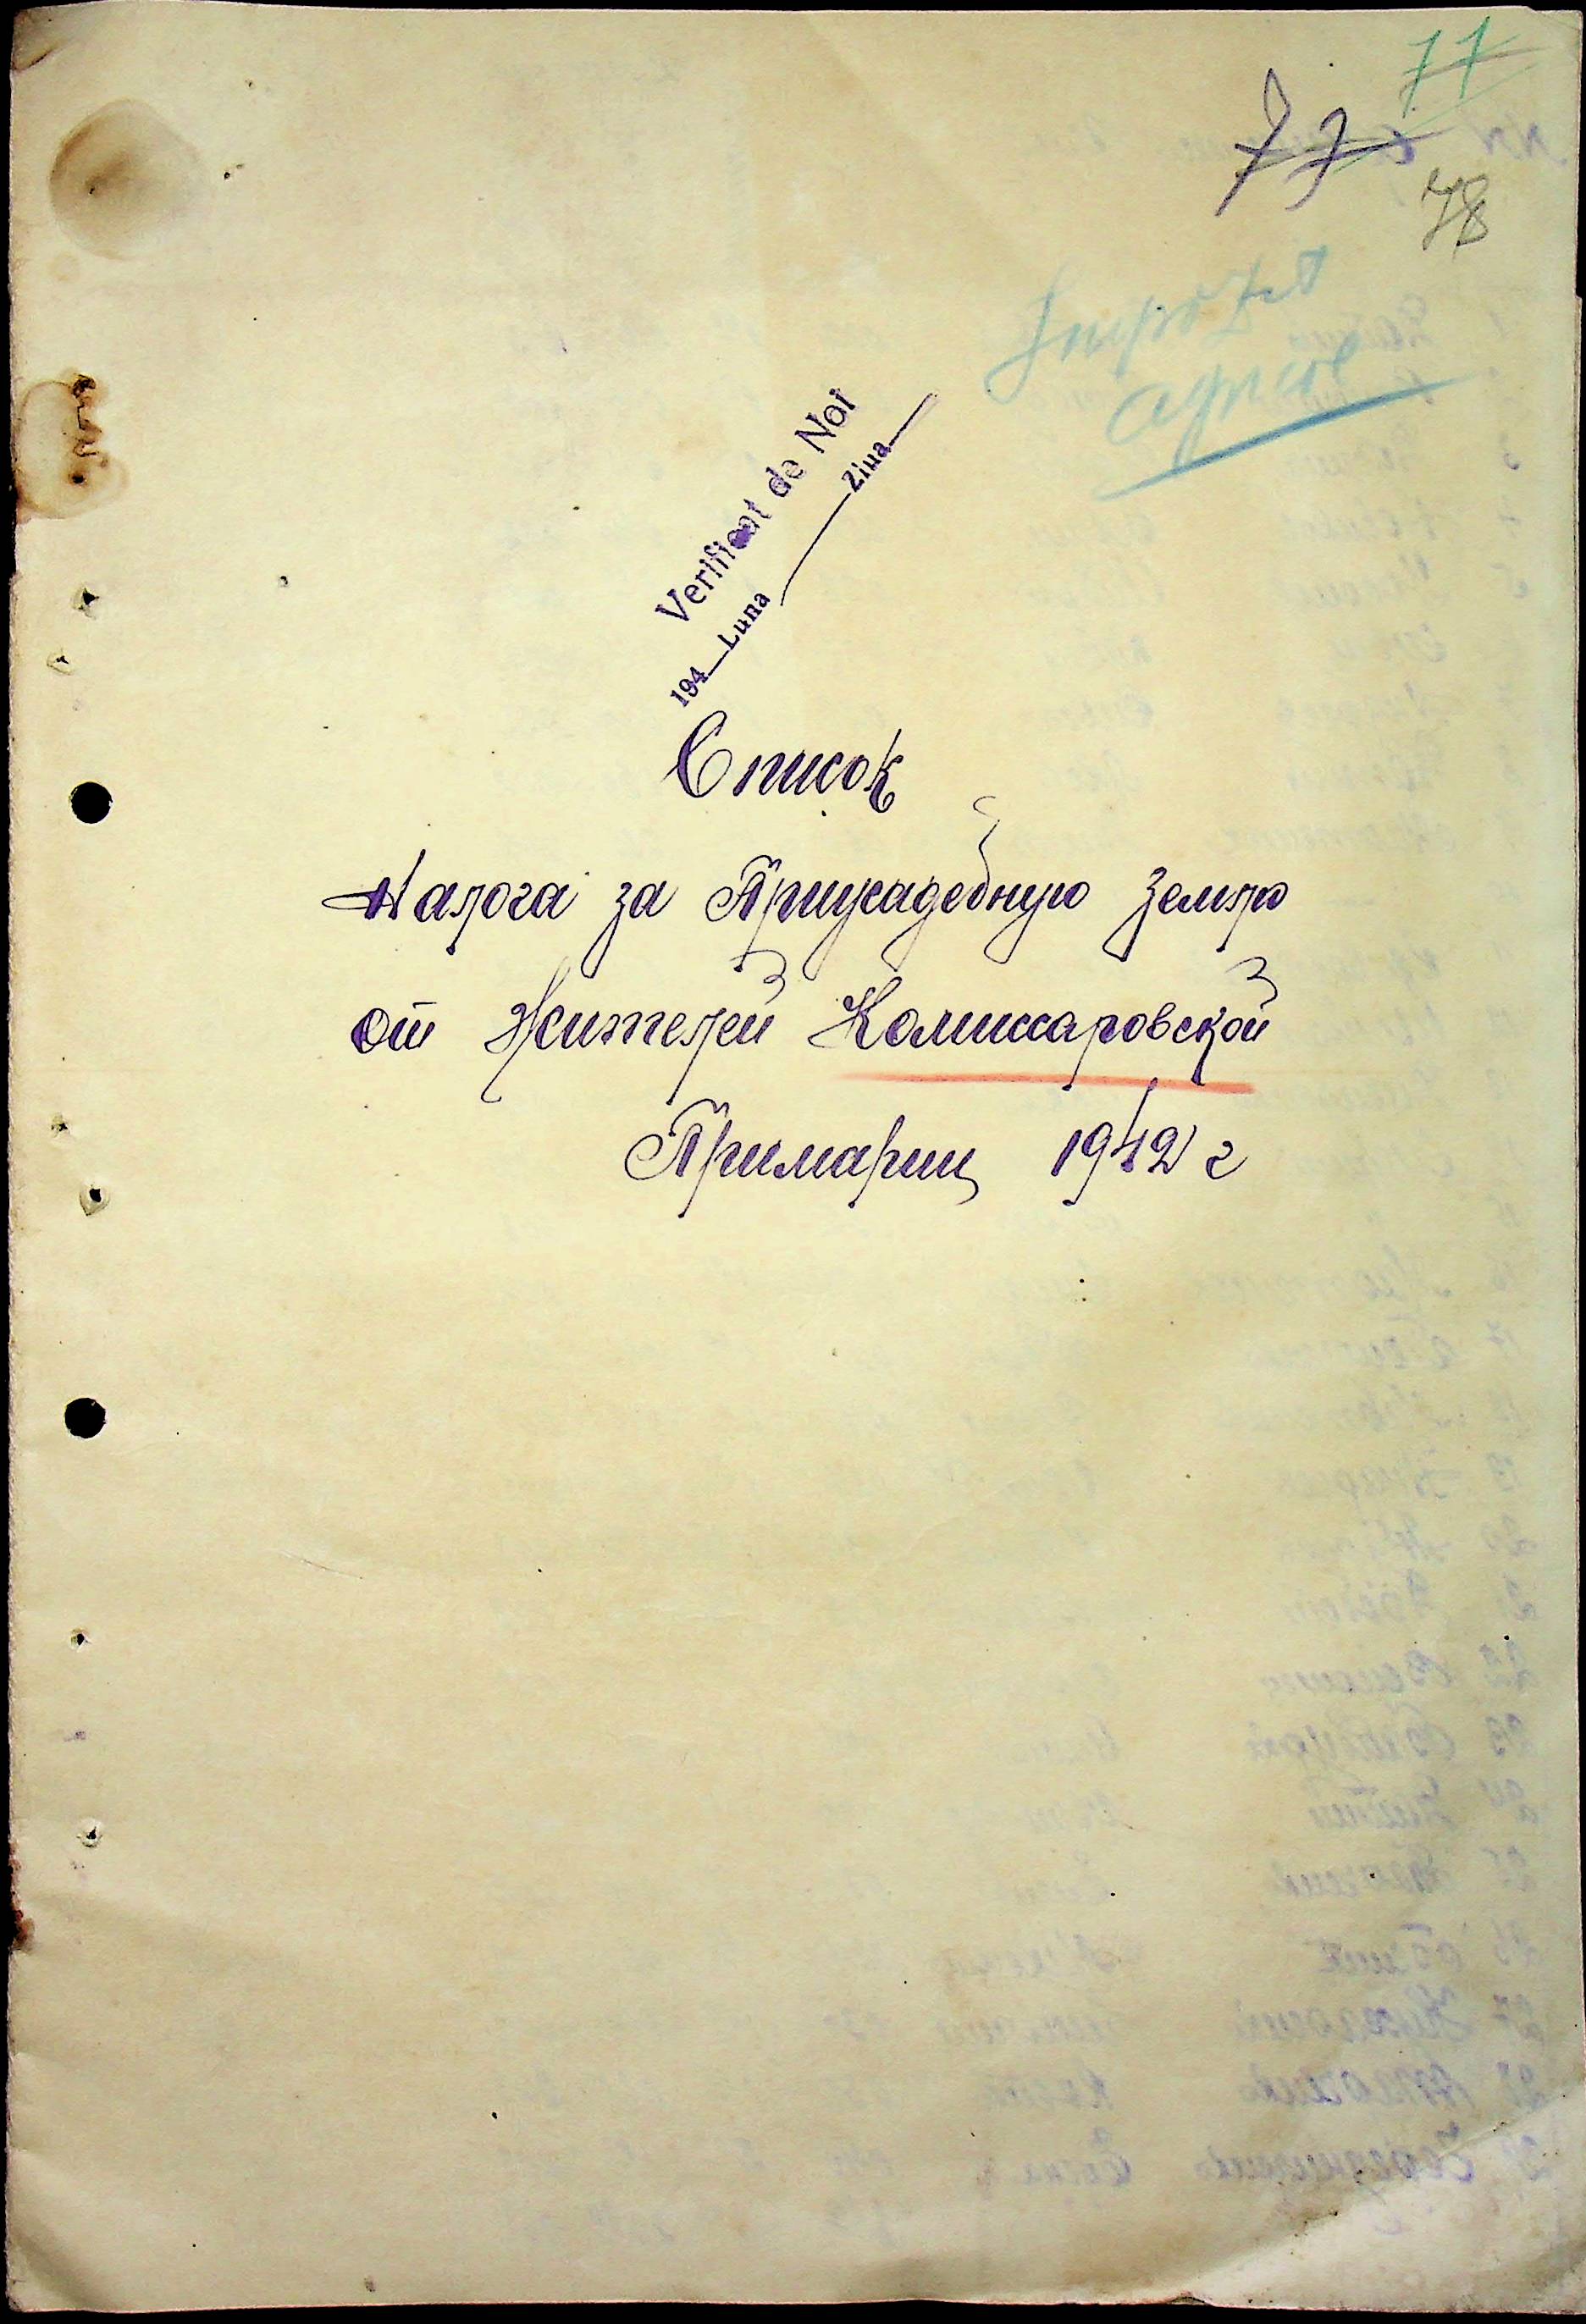 77
77
78
Impozit
agricol
Verificat de Noi
194 Luna Ziua
Список
Налога за Приусадебную Землю
от Жителей Комиссаровской
Примарии 1942 г